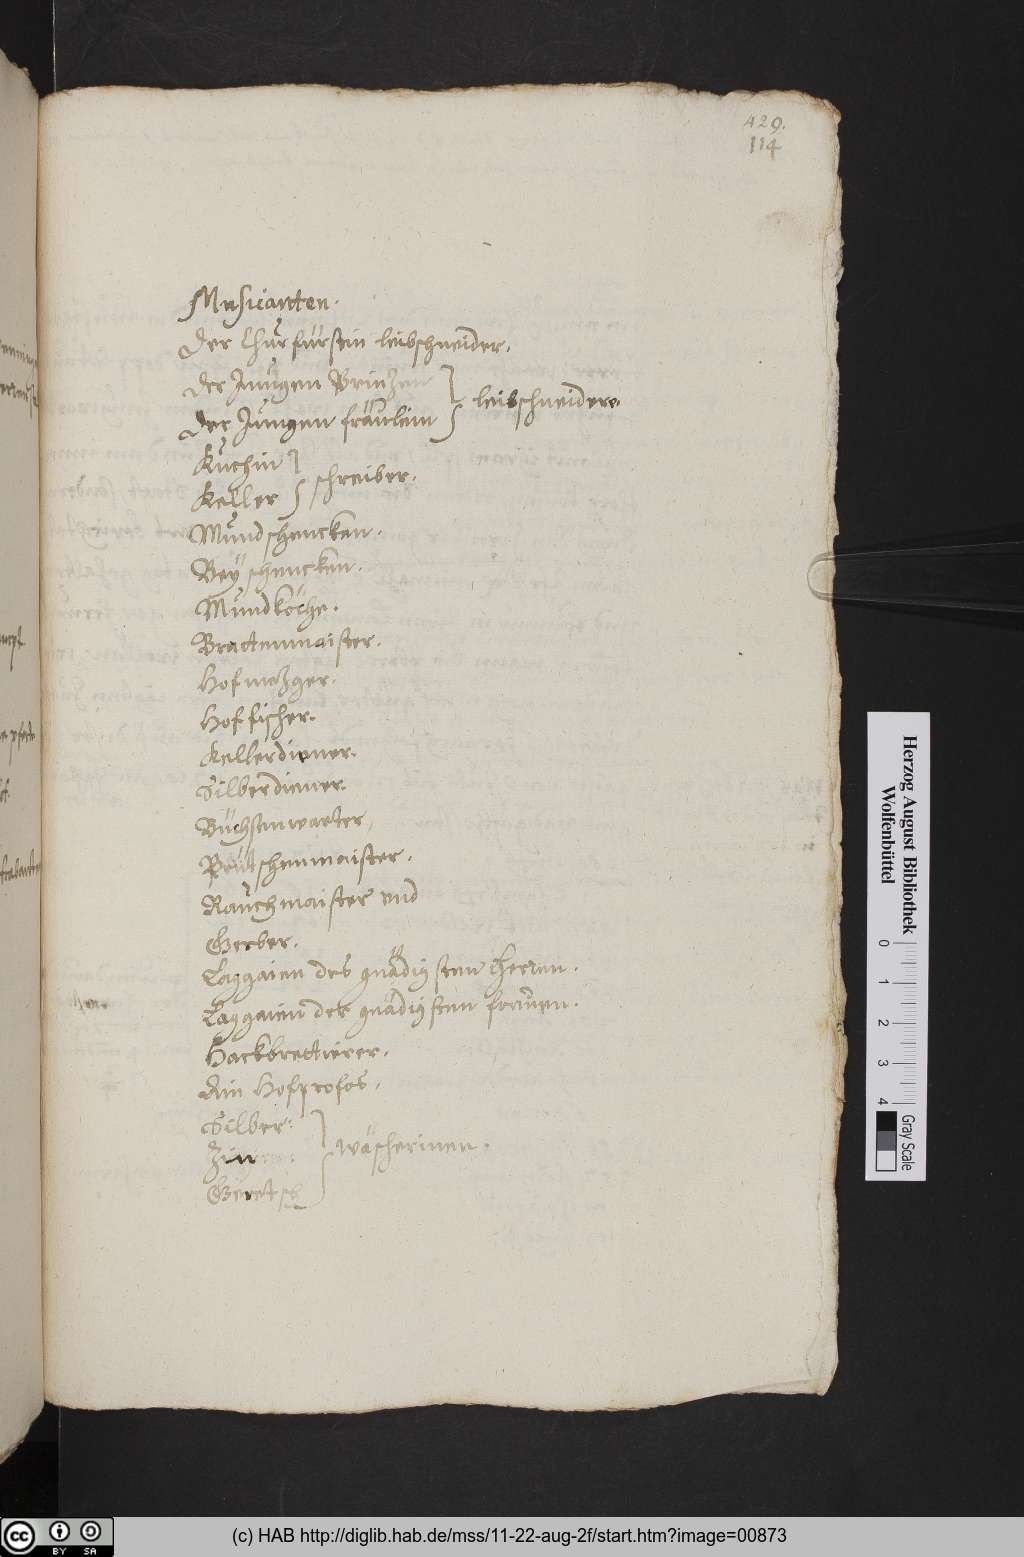 429.
114
Musicanten.
Der Churfürstin leibschneider.
Der Jungen Printzen } leibschneidere
Der Jungen fräulein
Kuchin } schreiber.
Keller
Mundschencken.
Beÿschencken.
Mundköche.
Brattenmaister.
Hofmetzger.
Hoffischer.
Kellerdiener.
Silberdiener.
Büchsenwarter,
Prütschenmaister.
Rauchmaister vnd
Gerber.
Laggaien des gnädigsten Herren.
Laggaien der gnädigsten frawen.
Hackbrettierer.
Ain Hofprofos.
Silber: } wäscherinen.
Zin
Geret
Herzog August Bibliothek
Wolfenbüttel
0 1 2 3 4
Gray Scale
(c) HAB http://diglib.hab.de/mss/11-22-aug-2f/start.htm?image=00873
cc BY SA